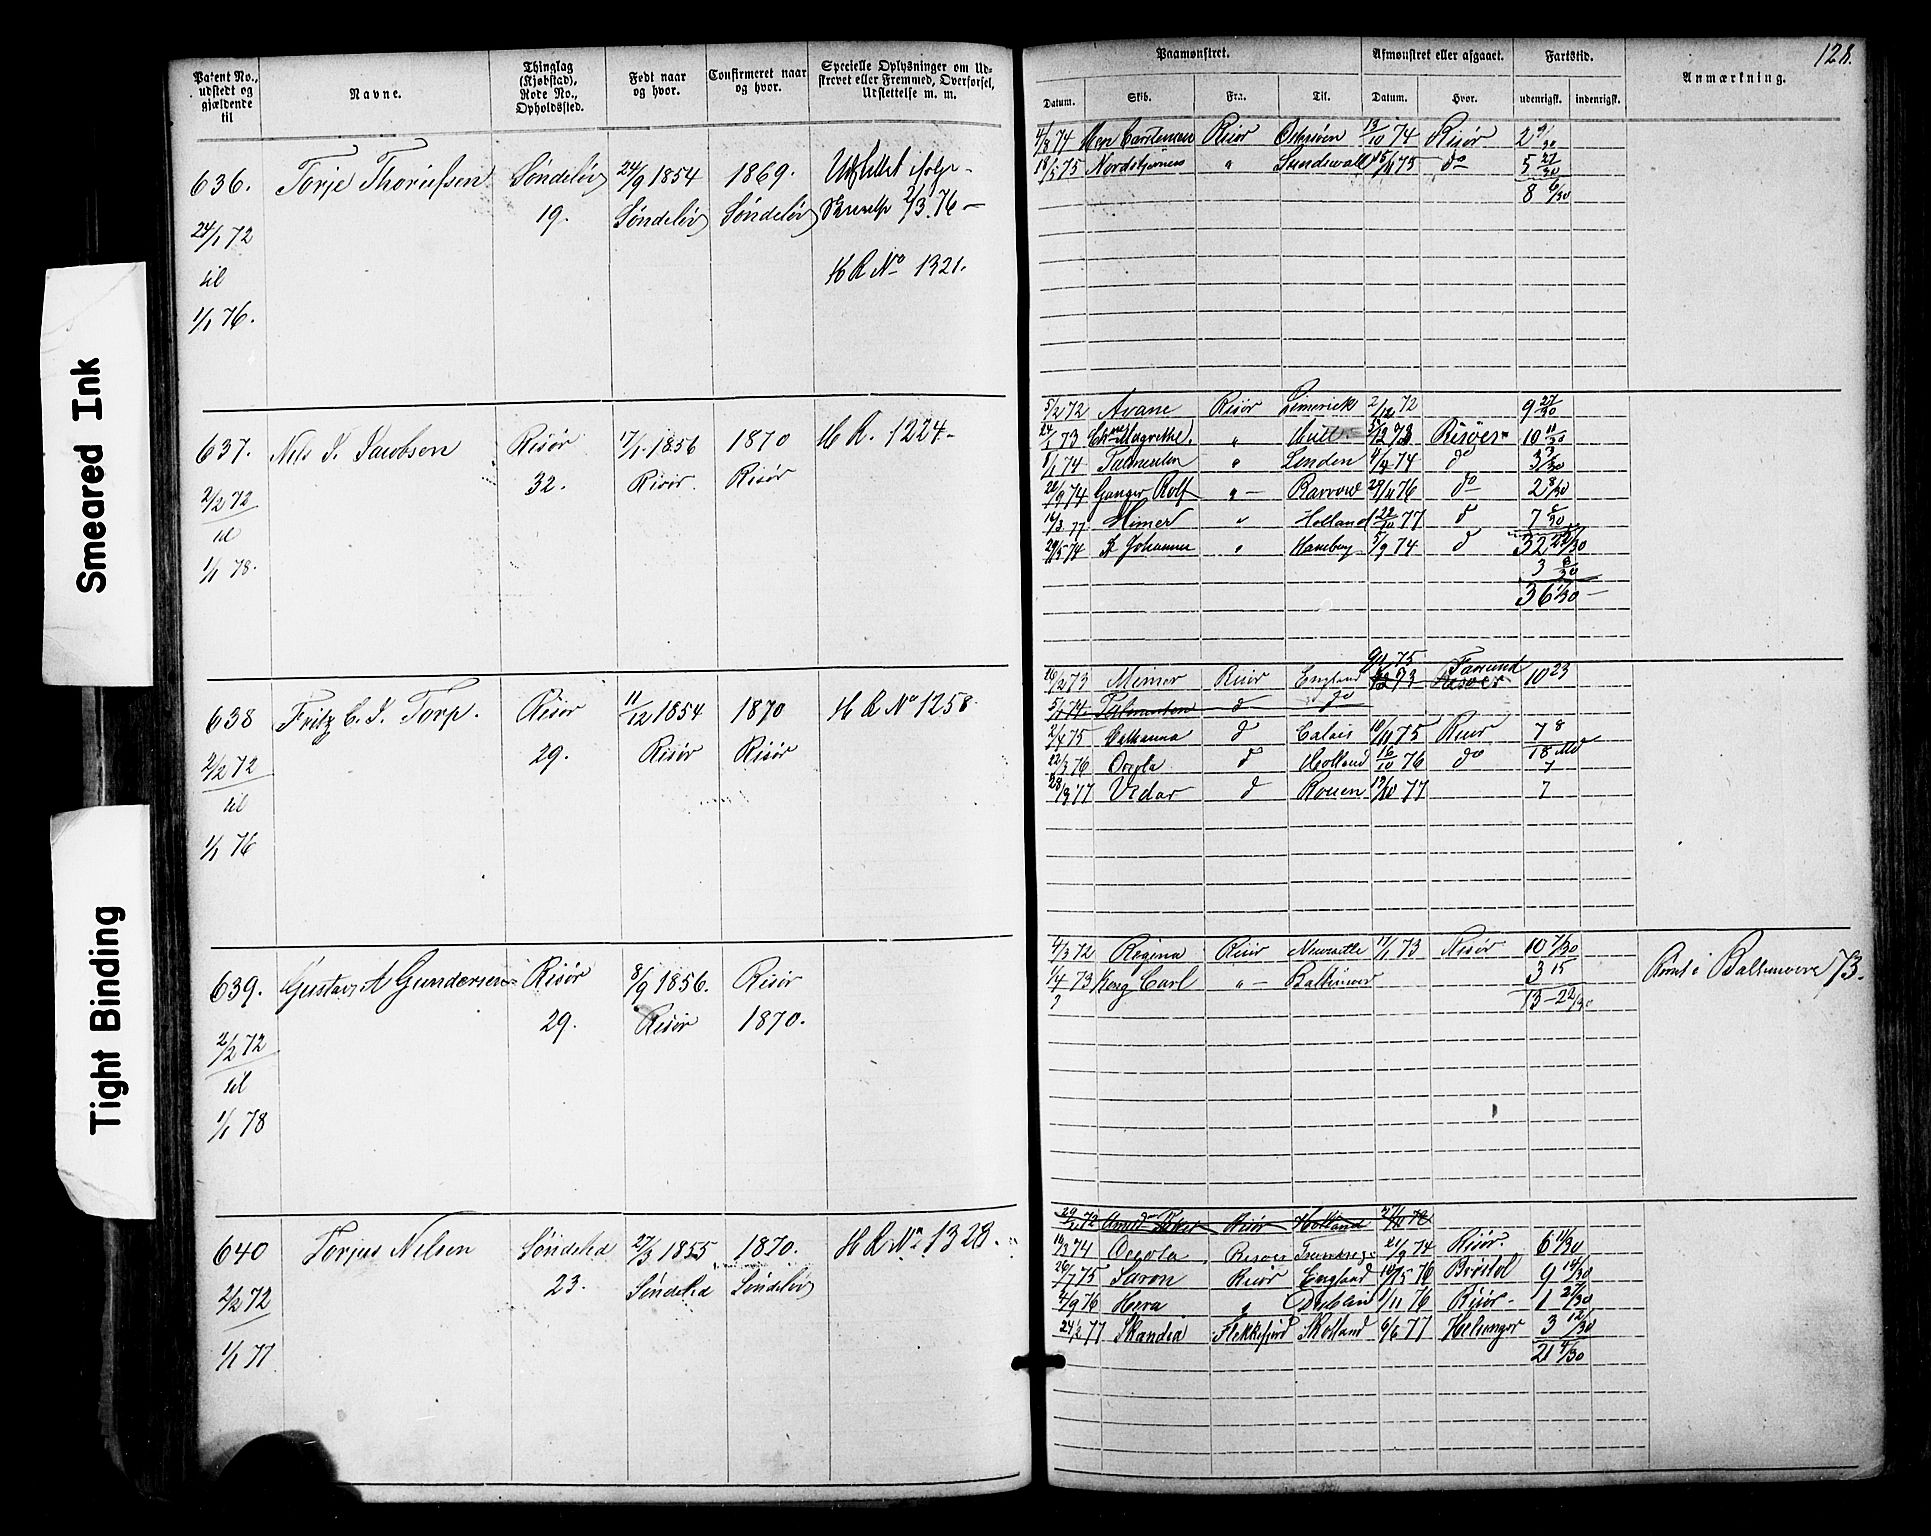 Smeared Ink
Tight Binding
128.
Patent No., udstedt og gjældende til
Navne.
Thinglag (Kjøbstad), Rode No., Opholdssted.
Født naar og hvor.
Confirmeret naar og hvor.
Specielle Oplysninger om Udskrevet eller Fremmed, Overførsel, Udslettelse m. m.
Paamønstret.
Afmønstret eller afgaaet.
Fartstid.
Anmærkning.
Datum. Skib. Fra. Til. Datum. Hvor. udenrigsk. indenrigsk.
636. Torje Thoriefsen Søndeløv 24/9 1854 1869.
19. Søndeløv Søndeløv 2/3.76 —
24/1 72
til
1/1 76.
H R No 1321.
4/3 74 Risør 13/10 74 Risør 2
18/5 75 Nordstjernen " Sundswall 15/11 75 do 5 27/30
8 6/30
637. Nils J. Jacobsen Risør 17/1 1856 1870 H R. 1224-
32. Risør. Risør
2/2 72
til
1/1 78.
5/2 72 Avane Risør Limerick 2/12 72 9 27/30
24/1 73 Magrethe. " Hull Risøer 10 11/30
8/1 74 Palmerten " Linden 4/4 74 do 3
26/9 74 Ganger Rolf " — Barrow 29/11 76 do 2 8/30
16/3 77 Mimer " Holland 22/10 77 d 7 6/30
29/5 74 Johanne " Hamborg 5/9 74 d 32
3 6/30
36 1/30 —
638 Fritz C. J. Torp. Risør 11/12 1854 1870 H R No 1258.
29. Risør Risør
2/2 72
til
1/1 76
9/1 75 Farsund
26/2 73 Mimer Risør England 73 Risøer 10 23
5/1 74 Palmerten d do
2/4 75 Catharina d Calais 10/11 75 Risør 7 8
18 Md
22/3 76 Oceola d Holland 16/10 76 do 7
28/3 77 Vidar d Rouen 19/10 77 7
639. Gustav A Gundersen Risør 8/9 1856. Risør
29. Risør 1870.
2/2 72
til
1/1 78
4/3 72 Regina Risør Newcastle 17/1 73 Risør 10
1/4 73 Kong Carl " — Baltimoer 3 15
13 — 22/30
Rømt i Baltimore 73.
640 Torjus Nilsen Søndeled 27/3 1855 1870. H R No 1328.
23. Søndeled Søndeløv
2/2 72
1/1 77
29/2 72 Risør Holland 27/11 72
16/3 74 Oceola Risøer 21/9 74 Risør. 6 11/30
26/7 75 Saron Risør England 10/5 76 Bristol 9 14/30
4/9 76 Hera " Dublin 1/11 76 Risør - 1 27/30
24/2 77 Skandia Flekkefjord Skotland 6/6 77 Helsingør 3 12/30
21 4/30